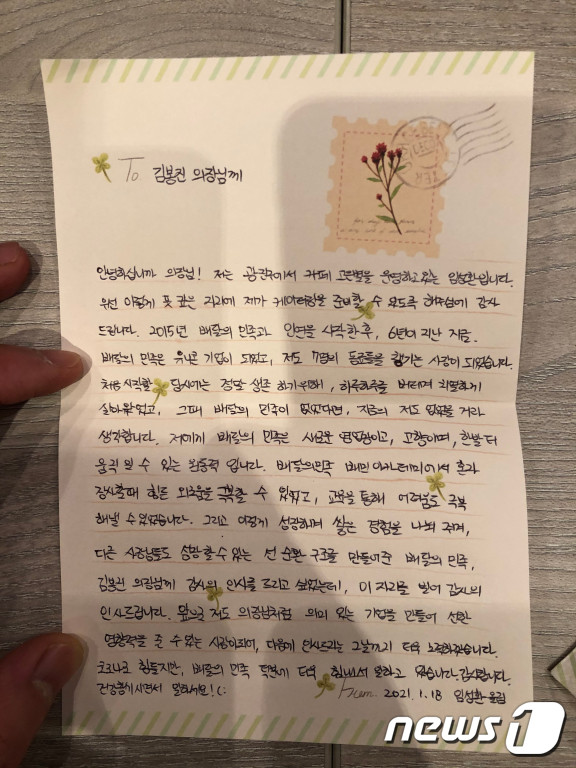 To. 김봉진 의장님께
안녕하십니까 의장님! 저는 광진구에서 카페 고르별을 운영하고있는 임성환입니다.
우선 이렇게 뜻 깊은 자리에 제가 케이터링을 준비할 수 있도록 해주심에 감사
드립니다. 2015년 배달의 민족과 인연을 시작한 후, 6년이 지난 지금.
배달의 민족은 유니콘 기업이 되었고, 저도 7명의 동료들을 챙기는 사장이 되었습니다.
처음 시작할 당시에는 정말 생존 하기위해, 하루하루를 버티며 치열하게
살아왔었고, 그때 배달의 민족이 없었다면, 지금의 저도 없었을 거라
생각합니다. 저에게 배달의 민족은 새로운 영업장이고, 고향이며, 한발 더
움직 일 수 있는 원동력 입니다. 배달의민족 배민아카데미에서 혼자
장사할때 힘든 외로움을 극복할 수 있었고, 교육을 통해 어려움도 극복
해낼 수 있었습니다. 그리고 이렇게 성장하며 쌓은 경험을 나눠 주며,
다른 사장님들도 성장할 수 있는 선 순환 구조를 만들어준 배달의 민족,
김봉진 의장님께 감사의 인사를 드리고 싶었는데, 이 자리를 빌어 감사의
인사드립니다. 앞으로 저도 의장님처럼 의미 있는 기업을 만들어 선한
영향력을 줄 수 있는 사람이되어, 다음에 인사드리는 그날까지 더욱 노력하겠습니다.
코로나로 힘들지만, 배달의 민족 덕분에 더욱 힘내서 일하고 있습니다. 감사합니다.
건강챙기시면서 일하세요! (:
From. 2021. 1. 18 임성환 올림
news1